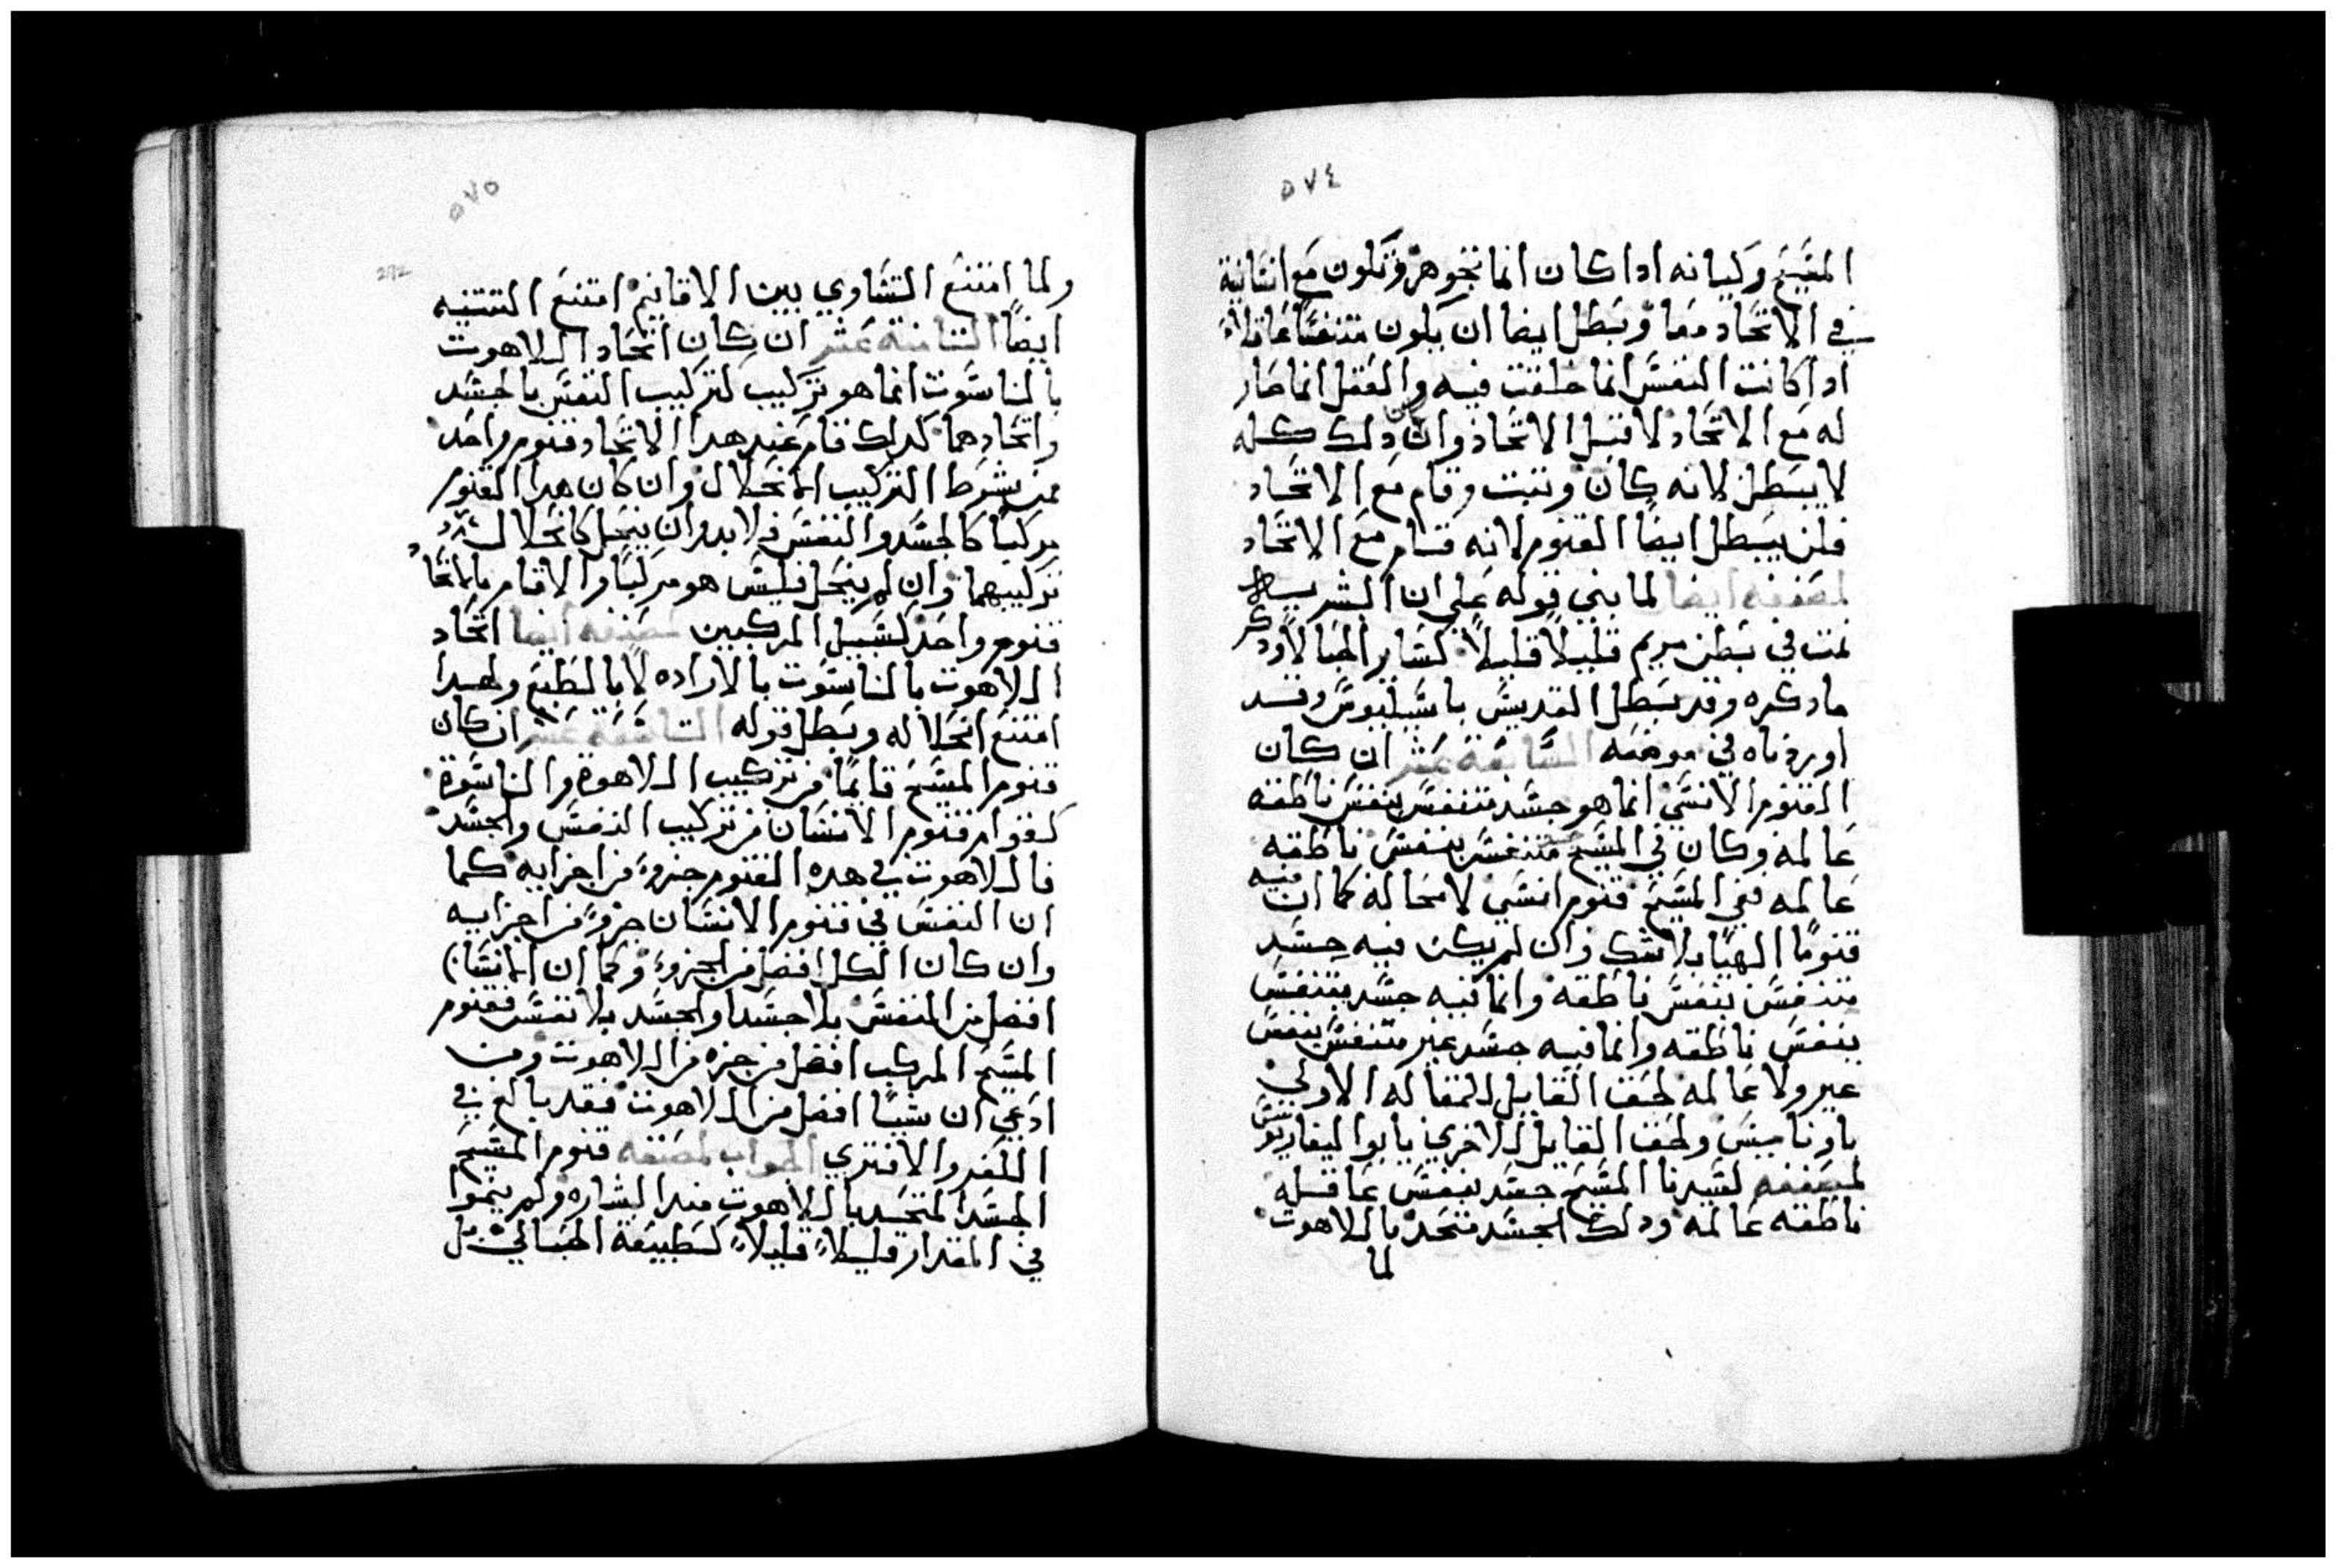 ٥٧٤
المسيح وكيانه ادا كان انما تجوهر وتكون مع انسانية
في الاتحاد معا وبطل ايضا ان يكون متنفسًا عاقلاً
ادا كانت النفس انما خلقت فيه والعقل انما صار
له مع الاتحاد لا قبل الاتحاد وان دلك كله
لا يبطل لانه كان وتبت وقام مع الاتحاد
فلن يبطل ايضًا القنوم لانه قام مع الاتحاد
لمصنفه ايضا لما بني قوله علي ان البشرية
نمت في بطن مريم قليلاً قليلاً كساير الحبالا ودكر
ما دكره وقد بطل القديس باسيليوس وقد
اوردناه في موضعه السابعة عشر ان كان
القنوم الانسي انما هو جسد متنفس بنفس ناطقه
عالمه وكان في المسيح متنفس بنفس ناطقه
عالمه ففي المسيح قنوم انسي لا محالة كما ان فيه
قنومًا الهيًا بلا شك وان لم يكن فيه جسد
متنفس بنفس ناطقه وانما فيه جسد متنفس
بنفس ناطقه وانما فيه جسد غير متنفس بنفس
غير ولا عالمه لحق القايل المقاله الاولي
باوناميس ولحق القايل للاخري بابوليناريوس
لمصنفه لسيدنا المسيح جسد بنفس عاقله
ناطقه عالمه ودلك الجسد متحد باللاهوت
لما
٥٧٥
272
ولما امتنع التساوي بين الاقانيم امتنع التتنيه
ايضًا التامنة عشر ان كان اتحاد اللاهوت
بالناسوت انما هو تركيب كتركيب النفس بالجسد
واتحادهما كدلك قام عند هدا الاتحاد قنوم واحد
فمن شرط التركيب الانحلال وان كان هدا القنوم
مركبًا كالجسد والنفس فلا بد وان ينحل كانحلال
تركيبهما وان لم ينحل فليس هو مركبًا ولا قام بالاتحاد
قنوم واحد كسبيل المركبين لمصنفه ايضا اتحاد
اللاهوت بالناسوت بالاراده لا بالطبع ولهدا
امتنع انحلاله وبطل قوله التاسعة عشر ان كان
قنوم المسيح قايمًا من تركيب اللاهوة والناسوة
كقوام قنوم الانسان من تركيب النفس والجسد
فاللاهوت في هده القنوم جزوً من اجزايه كما
ان النفس في قنوم الانسان جزوً من اجزايه
وان كان الكل افضل من الجزو وكما ان الانسان
افضل من النفس بلا جسد او الجسد بلا نفس فقنوم
المسيح المركب افضل من جزه من اللاهوت ومن
ادعي ان شيًا افضل من اللاهوت فقد بالغ في
الكفر والافتري الجواب لمصنفه قنوم المسيح
الجسد المتحد باللاهوت مند البشاره ولم ينموا
في المقدار قليلاً قليلاً كطبيعة الحبالي بل